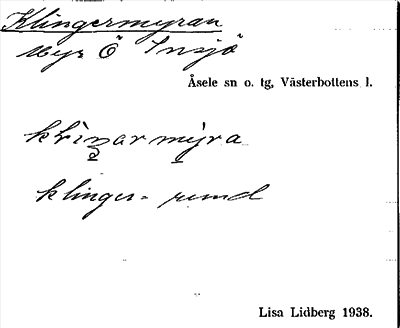 Klingermyran
Myr Ö Insjö
Åsele sn o. tg, Västerbottens l.
klinger- rund
Lisa Lidberg 1938.